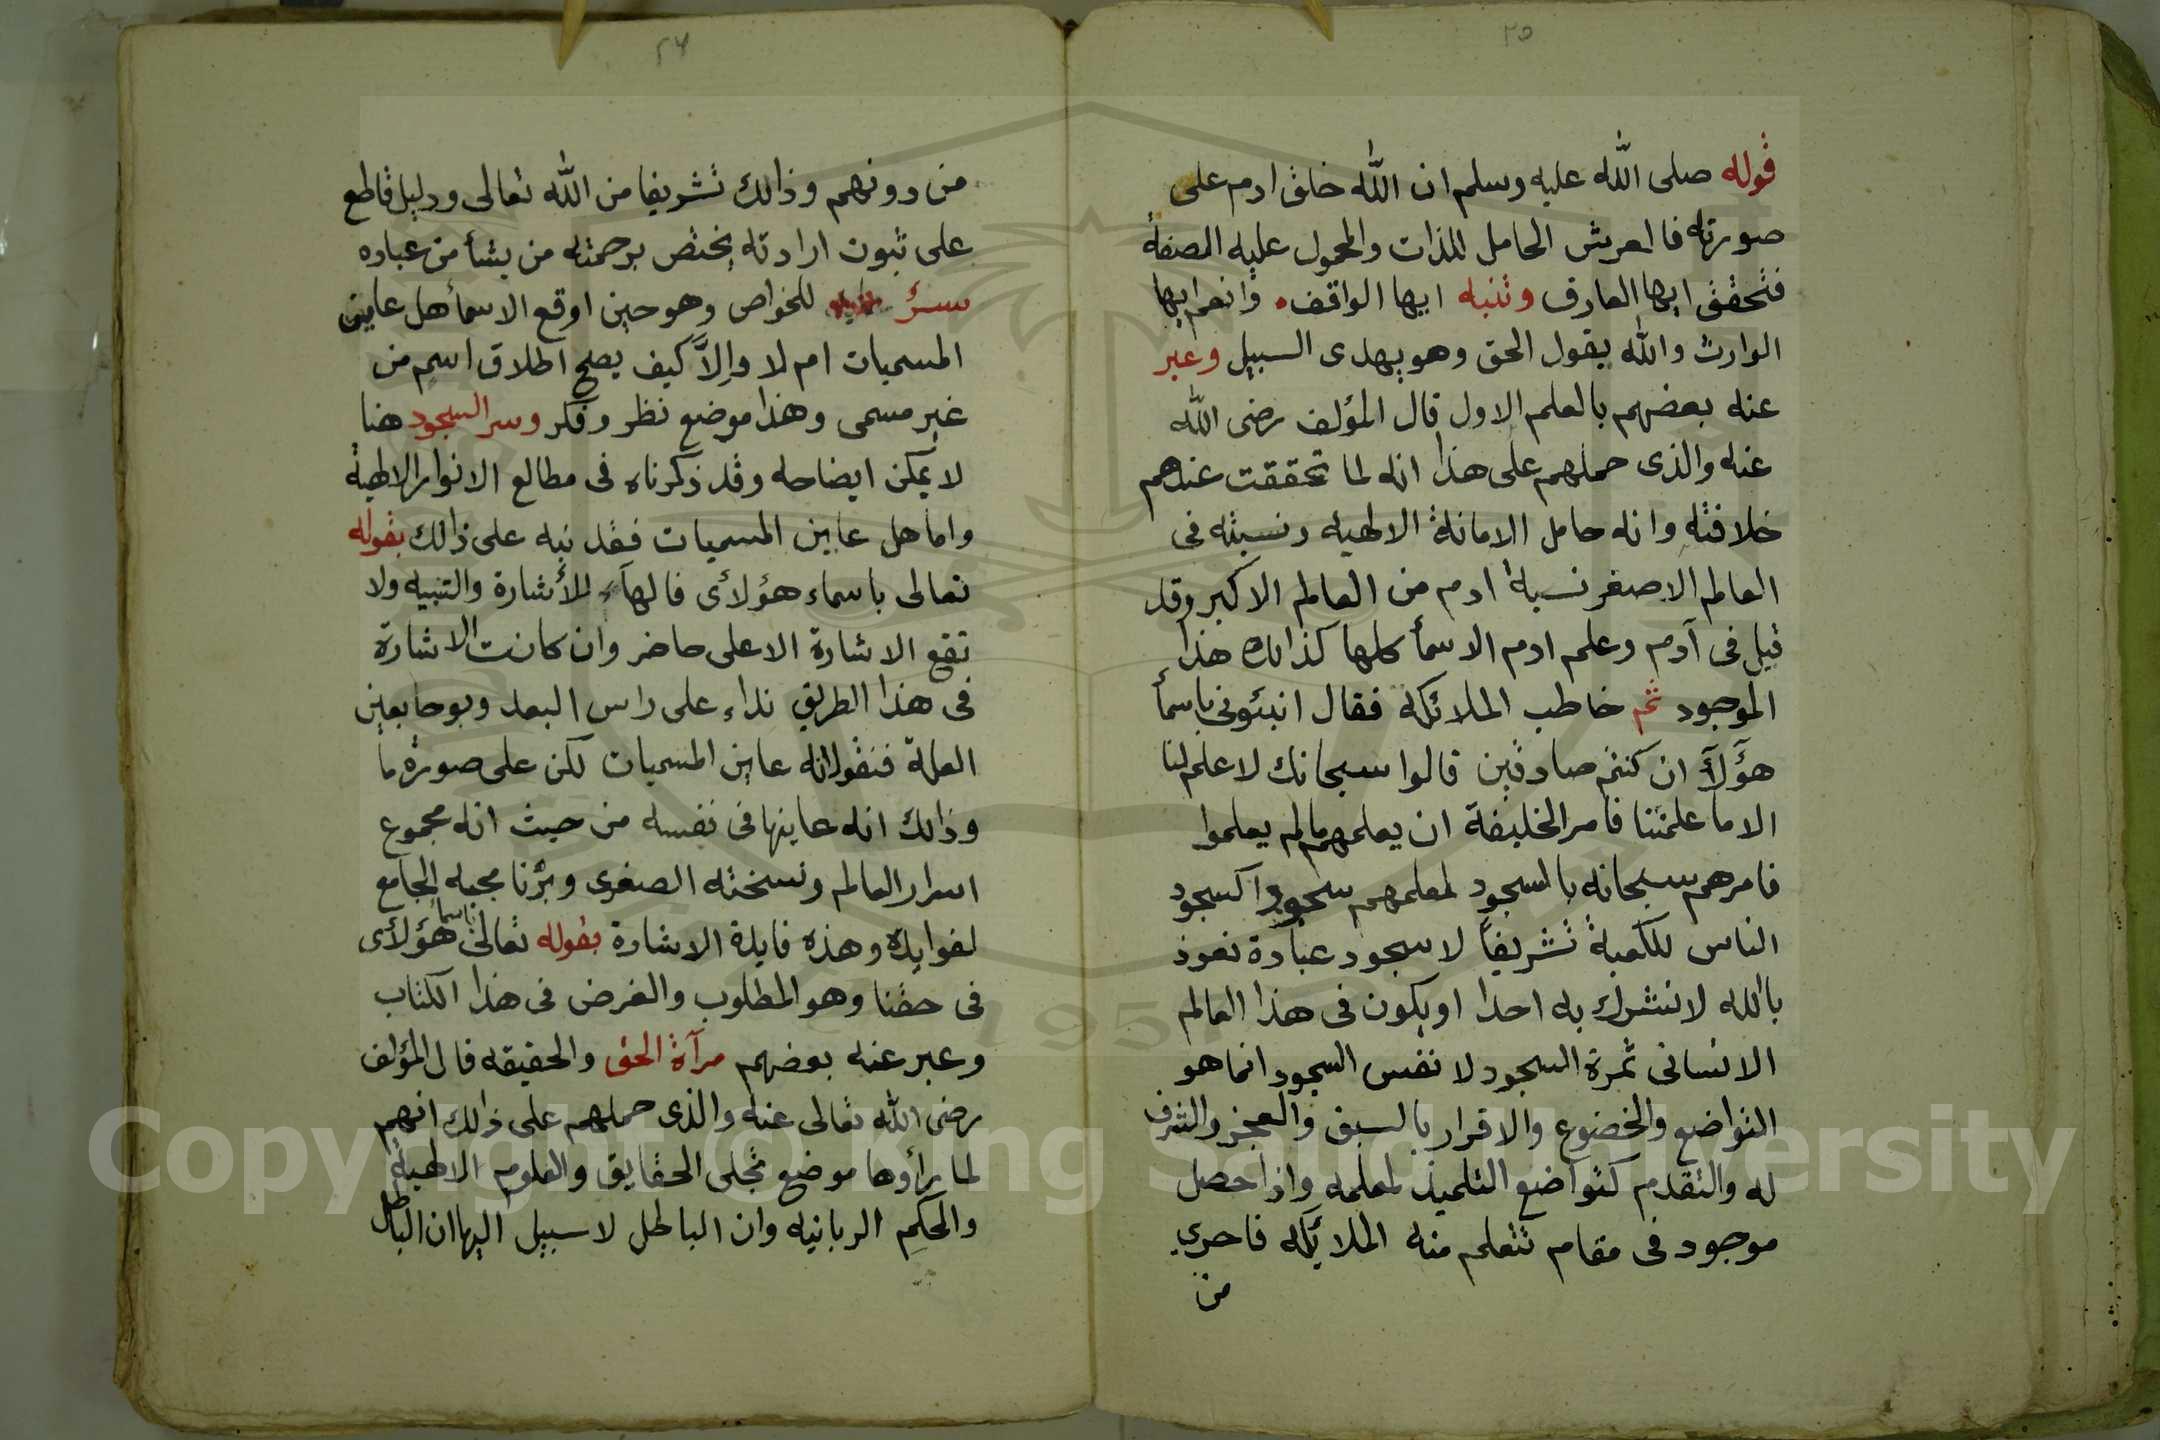 ٢٥
قوله صلى الله عليه وسلم ان الله خلق ادم على
صورته فالعرش الحامل للذات والمحمول عليه الصفة
فتحقق ايها العارف وتنبه ايها الواقف وانعم ايها
الوارث والله يقول الحق وهو يهدى السبيل وعبر
عنه بعضهم بالعلم الاول قال المؤلف رضى الله
عنه والذى حملهم على هذا انه لما تحققت عندهم
خلافته وانه حامل الامانة الالهيه ونسبته فى
العالم الاصغر نسبة ادم من العالم الاكبر وقد
قيل فى آدم وعلم ادم الاسمأ كلها كذالك هذا
الموجود ثم خاطب الملائكه فقال انبئونى باسمأ
هؤلآ ان كنتم صادقين قالوا سبحانك لا علم لنا
الا ما علمتنا فامر الخليفة ان يعلمهم مالم يعلموا
فامرهم سبحانه بالسجود لمعلمهم سجودا كسجود
الناس للكعبة تشريفاً لا سجود عبادة نعوذ
بالله لا نشرك به احدا اويكون فى هذا العالم
الانسانى ثمرة السجود لا نفس السجود انما هو
التواضع والخضوع والاقرار بالسبق والعجز والشرف
له والتقدم كتواضع التلميذ لمعلمه واذا حصل
موجود فى مقام تتعلم منه الملائكه فاحرى
من
٢٦
من دونهم وذالك تشريفا من الله تعالى ودليل قاطع
على ثبوت ارادته يختص برحمته من يشأ من عباده
سرٌ للخواص وهو حين اوقع الاسمأ هل عاين
المسميات ام لا وإلاَّ كيف يصح اطلاق اسم من
غير مسمى وهذا موضع نظر وفكر وسر السجود هنا
لا يمكن ايضاحه وقد ذكرناه فى مطالع الانوار الالهية
واما هل عاين المسميات فقد نبه على ذالك بقوله
تعالى باسماء هؤلأى فالهآء للأشارة والتنبيه ولا
تقع الاشارة الا على حاضر وان كانت الاشارة
فى هذا الطريق نداء على راس البعد وبوحا بعين
العلة فنقول انه عاين المسميات لكن على صورة ما
وذالك انه عاينها فى نفسه من حيث انه مجموع
اسرار العالم ونسخته الصغرى وبرنامجه الجامع
لفوايده وهذه فايدة الاشارة بقوله تعالى باسمأ هؤلأى
فى حقنا وهو المطلوب والغرض فى هذا الكتاب
وعبر عنه بعضهم مرآة الحق والحقيقه قال المؤلف
رضى الله تعالى عنه والذى حملهم على ذالك انهم
لما رأوها موضع تجلى الحقايق والعلوم الالهية
والحكم الربانيه وان الباطل لا سبيل اليها ان الباطل
Copyright © King Saud University
1957